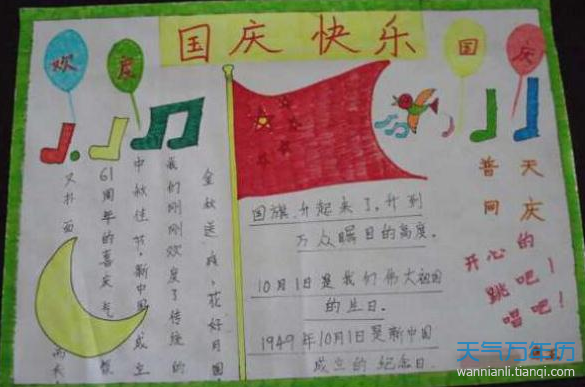 国庆 快乐
欢度
国庆
金秋送爽,花好月圆
我们刚刚欢度了传统的
中秋佳节,新中国成立
61周年的喜庆气氛
又扑面
国旗,升起来了,升到
万众瞩目的高度。
10月1日是我们伟大祖国
的生日.
1949年10月1日是新中国
成立的纪念日.
普天
同庆
开心的
跳吧!
唱吧!
天气万年历
wannianli.tianqi.com